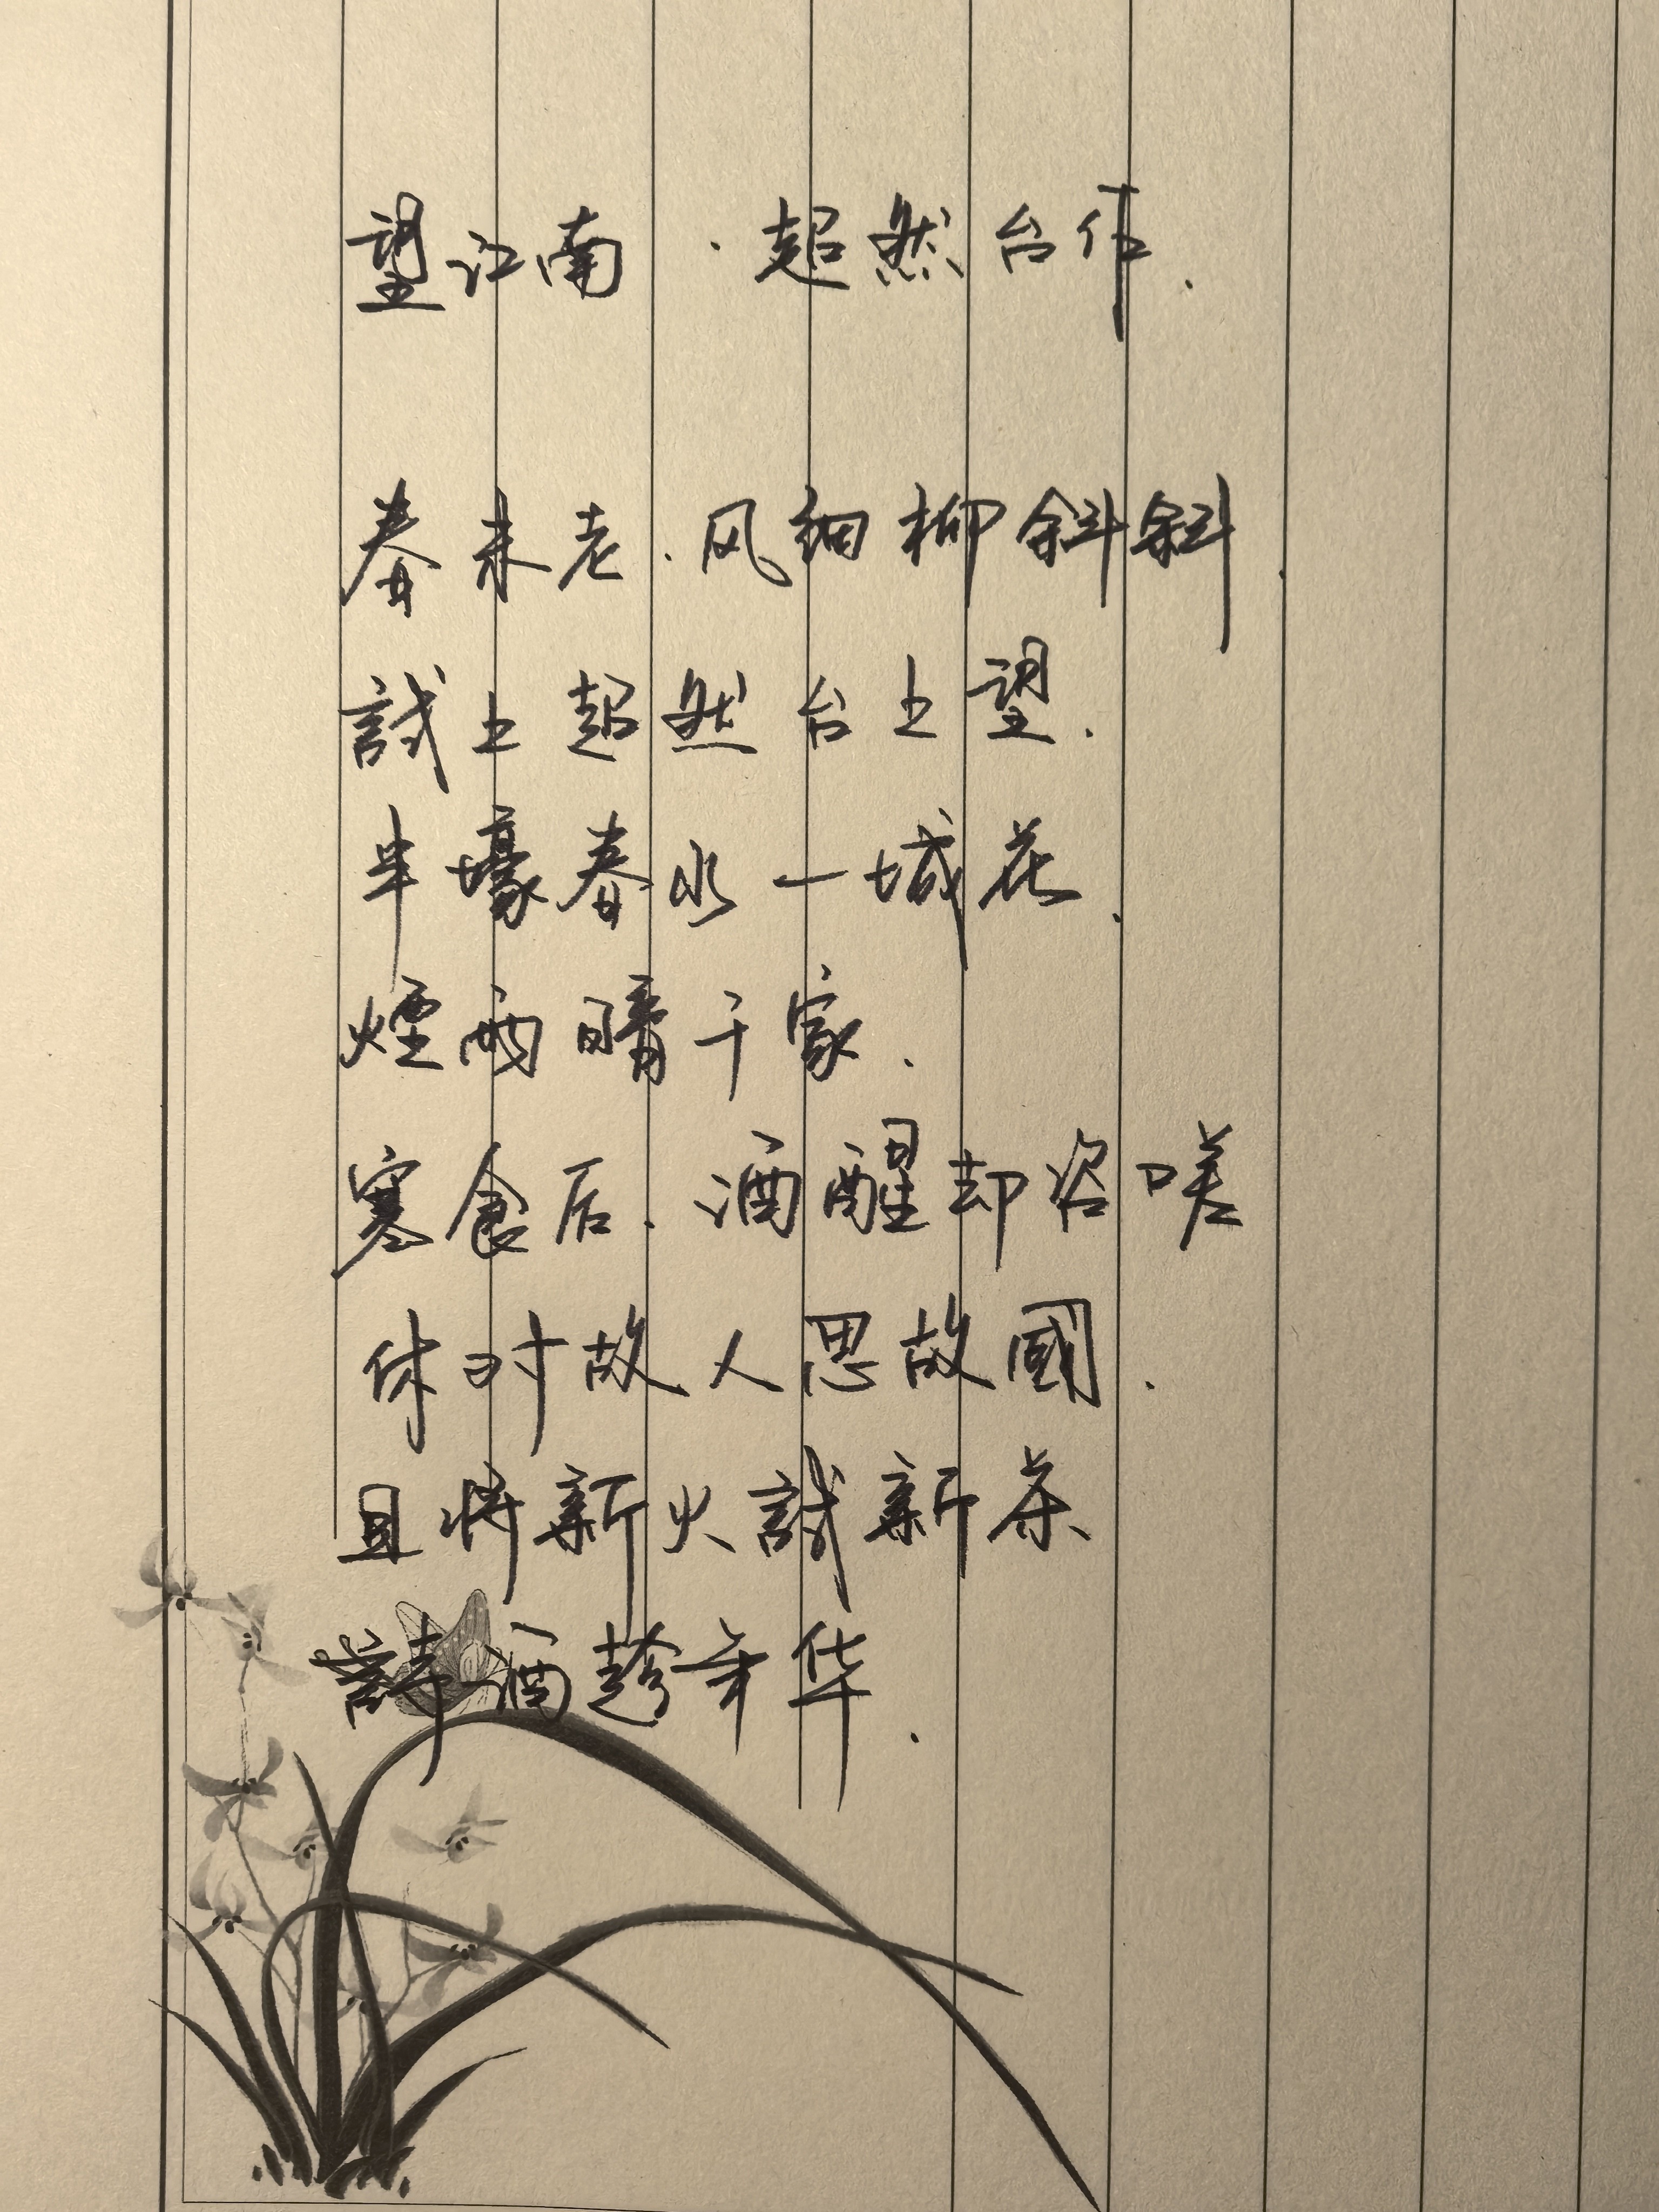 望江南·超然台作.
春未老.风细柳斜斜.
試上超然台上望.
半壕春水一城花.
煙雨暗千家.
寒食后.酒醒却咨嗟
休对故人思故國.
且将新火試新茶
詩酒趁年华.